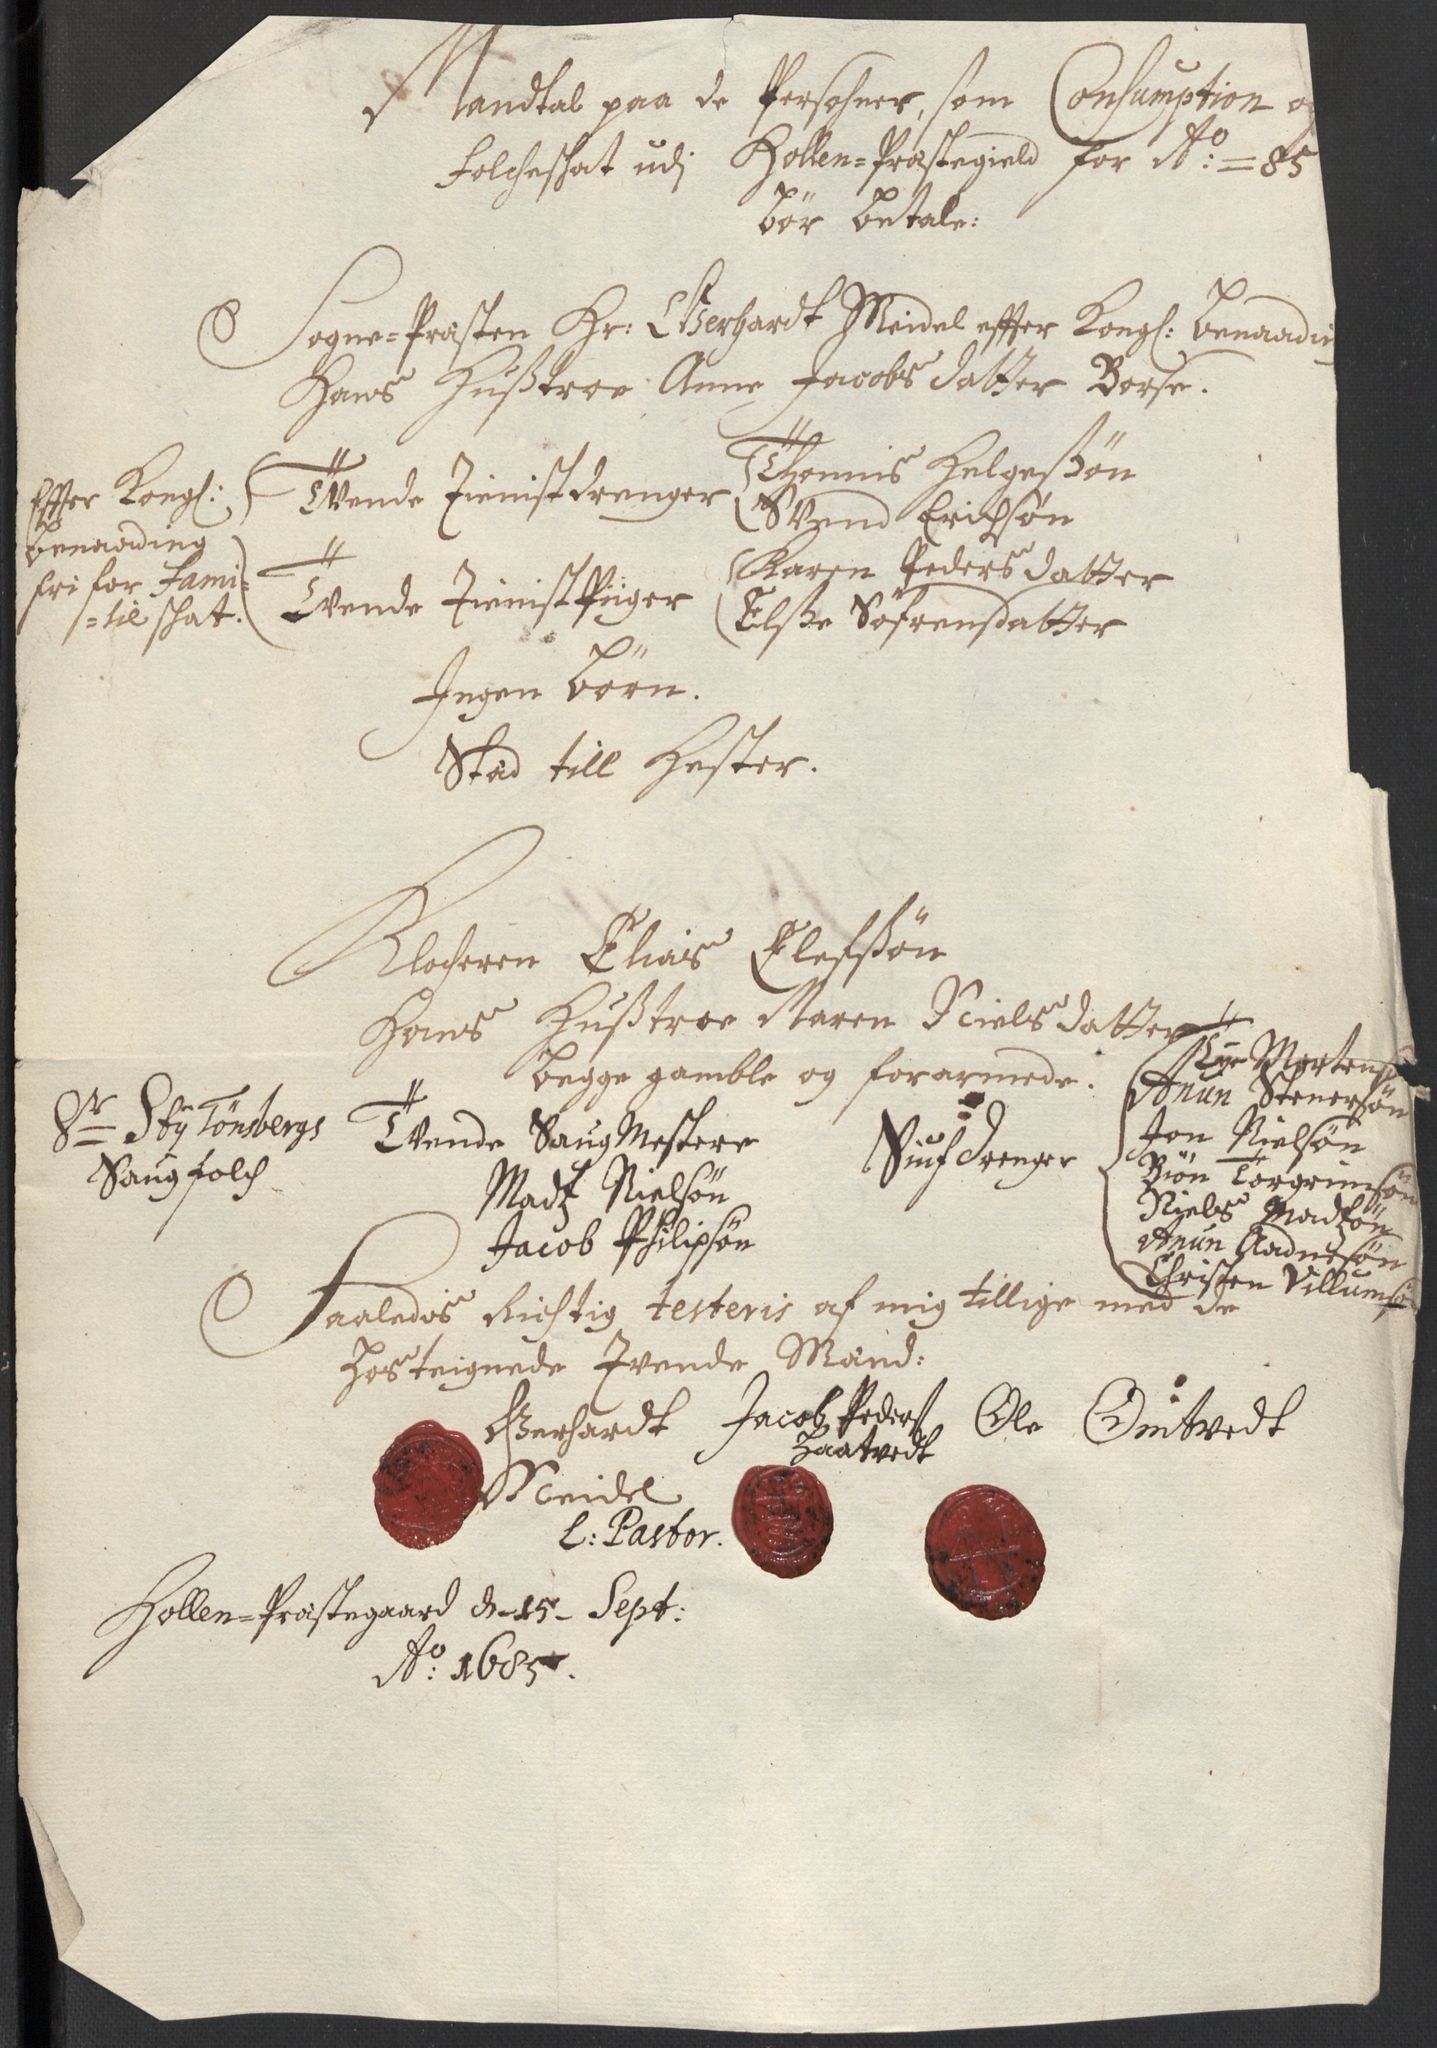 Mandtal paa de Persohner, som Consumption og
Folcheschat udj Hollen=Præstegield for Ao: = 85
bör betale:
Sogne=Præsten Hr: Gerhardt Meidel effter Kongl: benaading
Hans Hußtroe Anne Jacobs datter Borse.
Effter Kongl:
benaading
fri for Fami=
=lie schat.
Tvende Tienist drenger
Thonnis Helgeßön
Svend Erichsön
Tvende Tienist Piiger
Karen Peders datter
Elße Söfrensdatter
Ingen börn.
Städ till Hester.
Klocheren Elias Elefßön
Hans Hußtroe Maren Niels datter
begge gamble og forarmede.
Sr Sty Tönsbergs
Saug folch
Tvende Saug Mestere
Madtz Nielsön
Jacob Philipsön
Siuf drenger
Tye Mortens
Anun Stenersön
Jon Nielsön
Biön Torgrimsön
Niels Madtzön
Anun Aadnesön
Christen Villumsö
Saaledes Richtig testeris af mig tillige med de
hosteignede Tvende Mænd:
Gerhardt
Meidel
L: Pastor.
Jacob Peders
Haatvedt
Ole Omtvedt
Hollen=Præstegaard d. 15 Sept:
Ao: 1685.